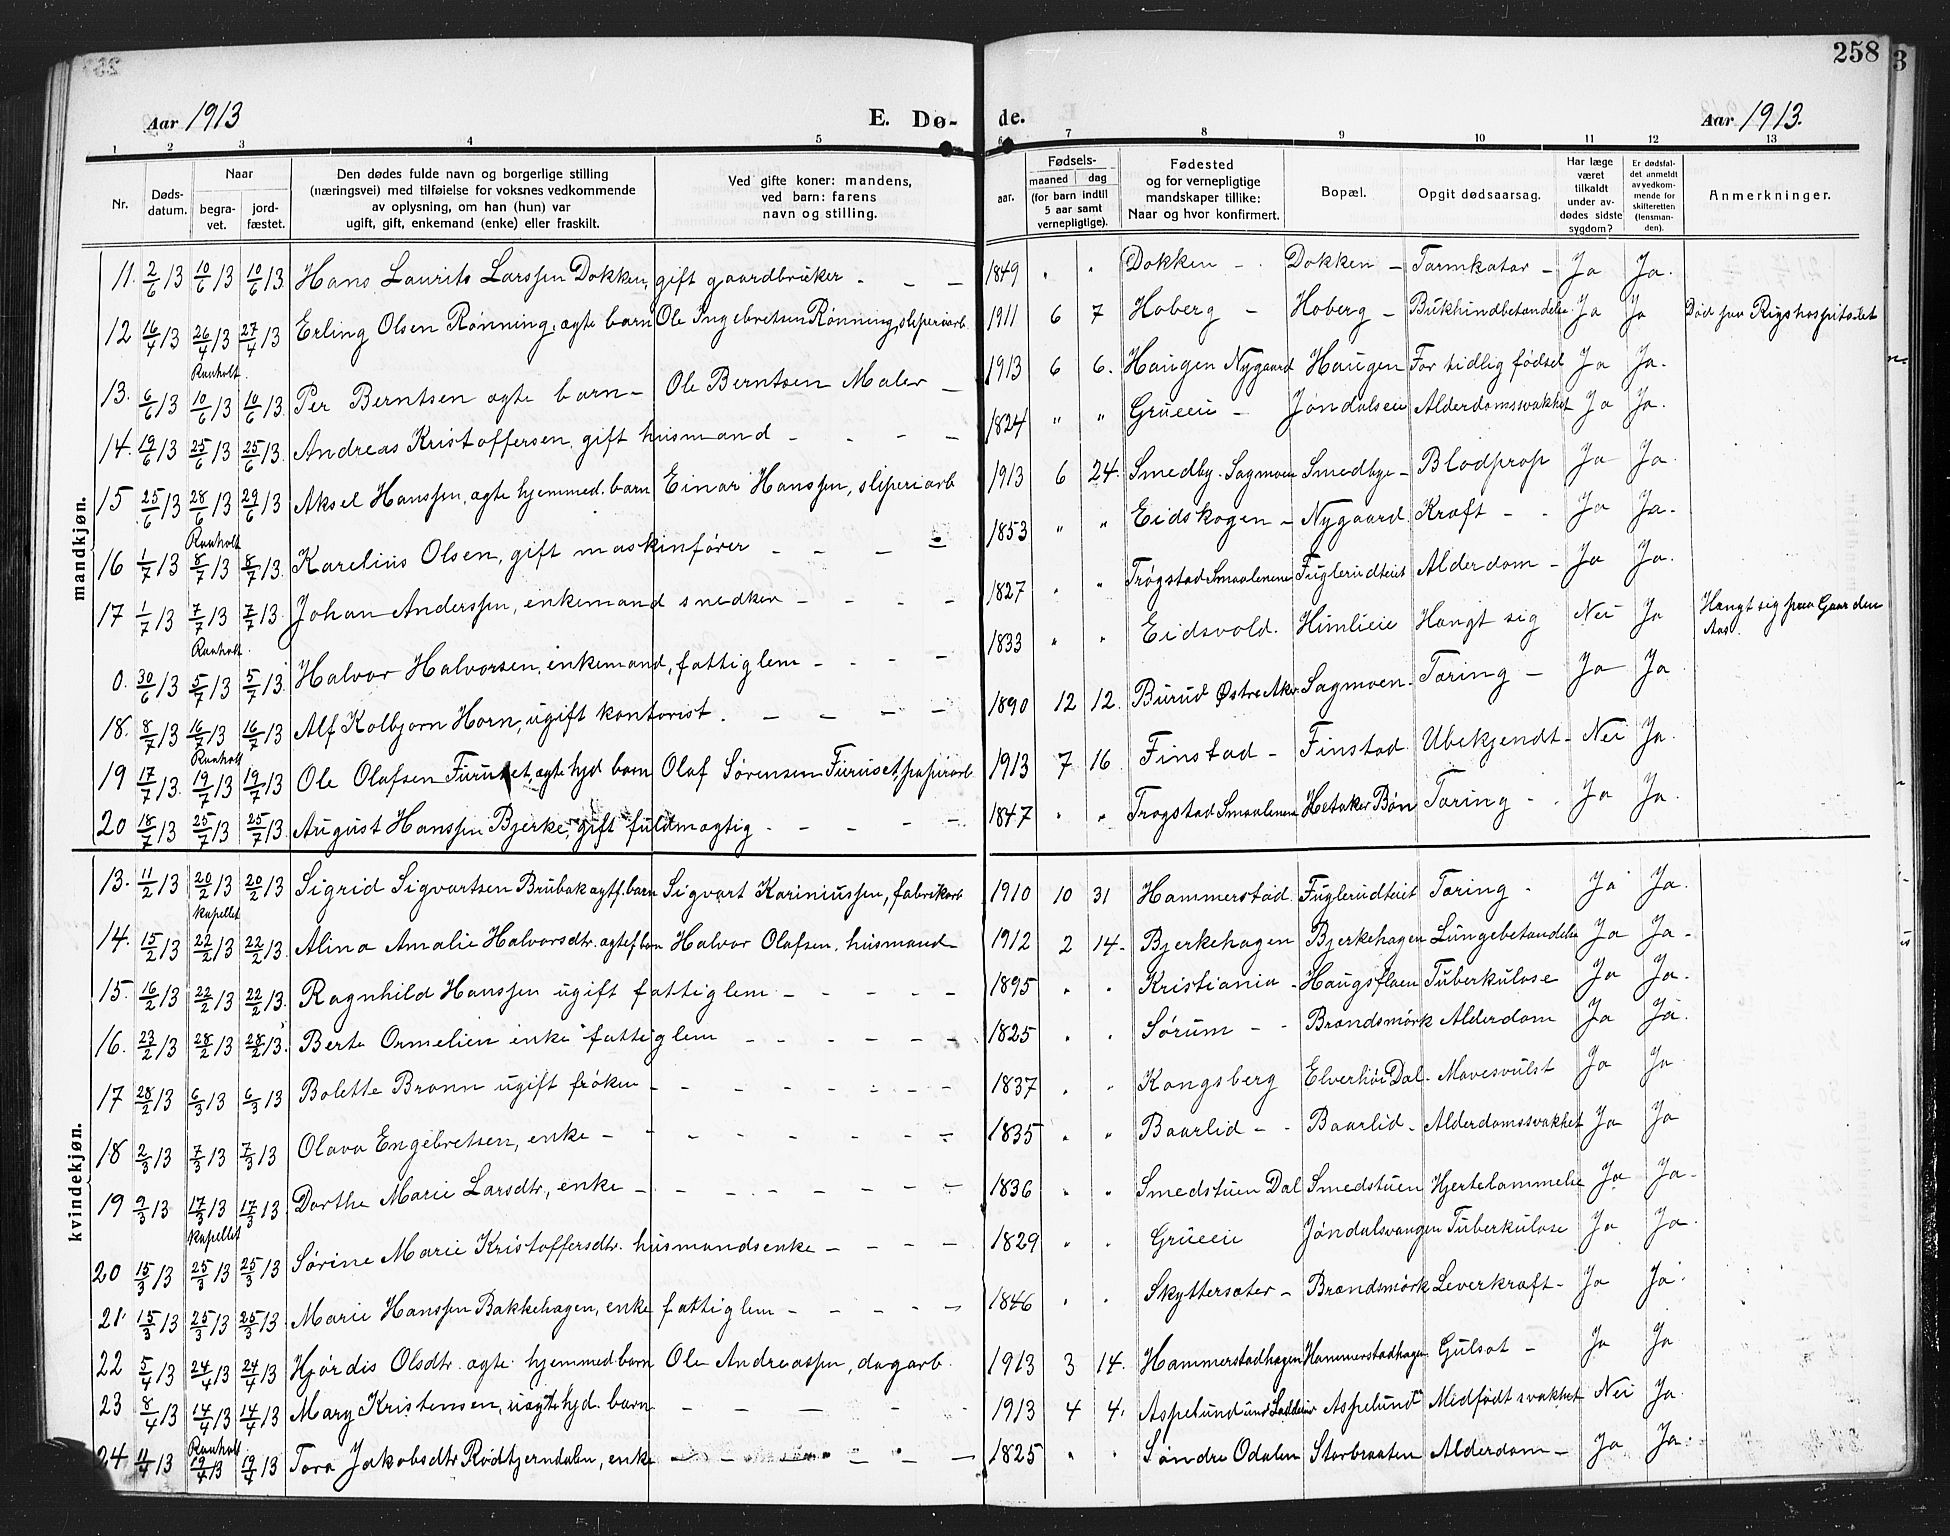 258
Aar 1913
E. Dø- de.
Aar 1913.
1 2 3 4 5 6 7 8 9 10 11 12 13
Nr.
Døds-
datum.
Naar
begra-
vet.
jord-
fæstet.
Den dødes fulde navn og borgerlige stilling
(næringsvei) med tilføielse for voksnes vedkommende
av oplysning, om han (hun) var
ugift, gift, enkemand (enke) eller fraskilt.
Ved gifte koner: mandens,
ved barn: farens
navn og stilling.
Fødsels-
aar.
maaned dag
(for barn indtil
5 aar samt
vernepligtige).
Fødested
og for vernepligtige
mandskaper tillike:
Naar og hvor konfirmert.
Bopæl.
Opgit dødsaarsag.
Har læge
været
tilkaldt
under av-
dødes sidste
sygdom?
Er dødsfal-
det anmeldt
av vedkom-
mende for
skifteretten
(lensman-
den).
Anmerkninger.
mandkjøn.
11. 2/6 13 10/6 13 10/6 13 Hans Laurits Larssen Dokken, gift gaardbruker - - - 1849 " " Dokken - Dokken - Tarmkatar - Ja Ja.
12 16/4 13 26/4 13 27/4 13 Erling Olsen Rønning, ægte barn Ole Ingebretsen Rønning, sliperiarb. 1911 6 7 Hoberg - Hoberg - Bukhindbetændelse Ja Ja Død paa Rigshospitalet
Raaholt.
13. 6/6 13 10/6 13 10/6 13 Per Berntsen ægte barn - Ole Berntsen Maler - 1913 6 6. Haugen Nygaard Haugen For tidlig fødsel Ja Ja.
14. 19/6 13 25/6 13 25/6 13. Andreas Kristoffersen, gift husmand - - - - 1824 " " Grueeie - Jøndalseie Alderdomssvakhet Ja Ja.
15 25/6 13 28/6 13 29/6 13 Aksel Hanssen, ægte hjemmed. barn Einar Hanssen, sliperiarb 1913 6 24. Smedby. Sagmoen Smedbye - Blodprop Ja Ja
Raaholt
16 1/7 13 8/7 13 8/7 13. Karelius Olsen, gift maskinfører - - - - 1853 " " Eidskogen - Nygaard Kræft - - Ja Ja.
17 1/7 13 7/7 13 7/7 13. Johan Anderssen, enkemand snedker - - - - 1827 " " Trøgstad Smaalenene Fuglerudteiet Alderdom - Ja Ja.
Raaholt.
0. 30/6 13 5/7 13 5/7 13. Halvor Halvorsen, enkemand, fattiglem - - - - 1833 " " Eidsvold. Himlieie Hængt sig Nei Ja Hængt sig paa Gaarden Aas.
18. 8/7 13 16/7 13 16/7 13 Alf Kolbjørn Horn, ugift kontorist. - - - - 1890 12 12. Burud Østre Aker Sagmoen. Tæring - Ja Ja
Raaholt
19 17/7 13. 19/7 13 19/7 13 Ole Olafsen Furuset, ægte hjd barn Olaf Sørensen Furuset, papirarb. 1913 7 16 Finstad - Finstad Ubekjendt - Nei Ja.
20 18/7 13 25/7 13 25/7 13. August Hanssen Bjerke, gift fuldmægtig - - - - 1847 " " Trøgstad Smaalenene Hetaker Bøn Tæring - . Ja Ja.
kvindekjøn.
13. 11/2 13 20/2 13 20/2 13 Sigrid Sigvartsen Brubak ægtf. barn Sigvart Kariniussen, fabrikarb 1910 10 31 Hammerstad Fuglerudteiet Tæring - Ja Ja.
Kapellet
14. 15/2 13 22/2 13 22/2 13 Alina Amalie Halvorsdtr. ægtef barn Halvor Olafsen, husmand 1912 2 14. Bjerkehagen Bjerkehagen Lungebetændelse Ja Ja -
15. 16/2 13 22/2 13 22/2 13. Ragnhild Hanssen ugift fattiglem - - - - 1895 " " Kristiania - Haugsflaen Tuberkulose Ja Ja.
16. 23/2 13 28/2 13 28/2 13. Berte Ormelien enke fattiglem - - - - 1825 " " Sørum - - Brændsmørk Alderdom Ja Ja.
17 28/2 13 6/3 13 6/3 13 Bolette Bronn ugift frøken - - - - 1837 " " Kongsberg Elverhøi Dal - Mavesvulst Ja Ja
18 2/3 13 7/3 13 7/3 13 Olava Engebretsen, enke - - - - 1835 " " Baarlid - - Baarlid - Alderdomssvakhet Ja Ja
19 9/3 13 17/3 13 17/3 13 Dorthe Marie Larsdtr, enke - - - - 1836 " " Smedstuen Dal Smedstuen Hjertelammelse Ja Ja -
Kapellet
20 15/3 13 25/3 13 25/3 13 Sørine Marie Kristoffersdtr. husmandsenke - - - - 1829 " " Grueeie Jøndalsvangen Tuberkulose Ja Ja.
21. 15/3 13 25/3 13 25/3 13. Marie Hanssen Bakkehagen, enke fattiglem - - - - 1846 " " Skyttersæter - Brændsmørk Leverkræft - Ja Ja.
22 5/4 13 24/4 13 24/4 13 Hjørdis Olsdtr. ægte hjemmed barn Ole Andreassen, dagarb. 1913 3 14. Hammerstadhagen Hammerstadhagen Gulsot - Ja Ja
23 8/4 13 14/4 13 14/4 13 Mary Kristensen, uægte hjd. barn - - - - 1913 4 4. Aspelund und. Laddeier Aspelund Medfødt svakhet Nei Ja.
Raaholt
24 11/4 13 19/4 13 19/4 13 Tora Jakobsdtr Rødtjerndalen, enke - - - - 1825 " " Søndre Odalen Storbraaten Alderdom - Ja Ja.